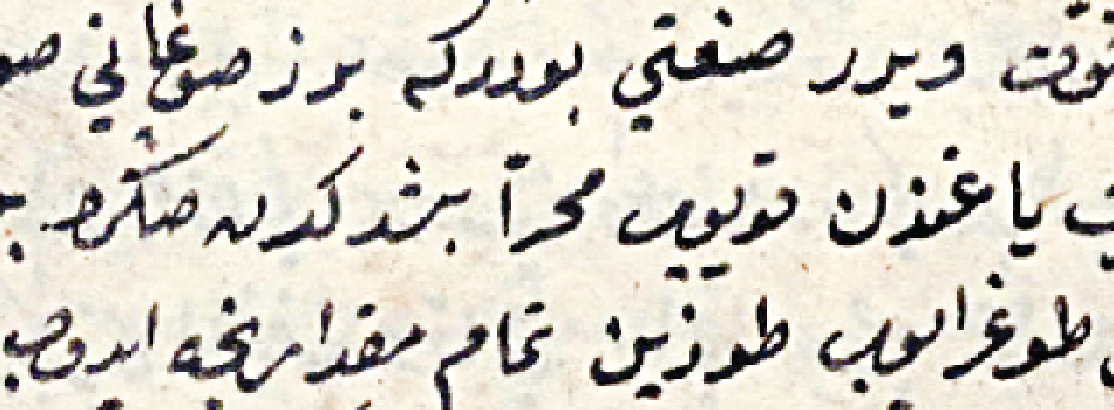 قوت ويرر صنعتي بودركه برز صوغاني صو
ياغندن قويوب محرا بشدكدن صكره
طوغرايوب طوزين تمام مقدارنجه ايدوب